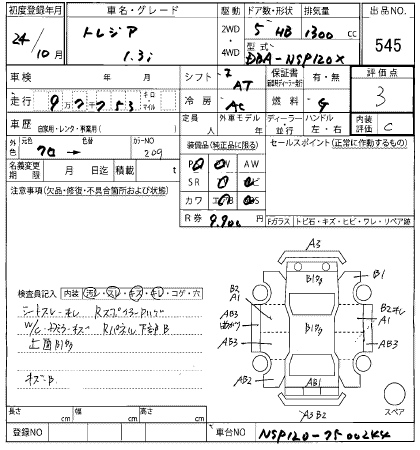 初度登録年月 車名・グレード 駆動 ドア数・形状 排気量 出品NO.
24/10月 トレジア 1.3i 2WD・4WD 5 HB 1300cc 545
型式 DBA-NSP120X
車検 年 月 シフト AT 保証書 有・無 評価点 3
走行 9万7753 キロ マイル 冷房 AC 燃料 G
車歴 自家用・レンタ・事業用( ) 定員 人 外車モデル 年 ディーラー・並行 ハンドル 左・右 内装評価 C
外色 元色 クロ 色替→ カラーNO 209
装備品(純正品に限る) セールスポイント(正常に作動するもの)
名義変更期限 月 日迄 積載 t
PS PW AW
SR
カワ
R券 9,900円
注意事項(欠品・修復・不具合箇所および状態)
Fガラス トビ石・キズ・ヒビ・ワレ・リペア跡
検査員記入 内装 汚レ・スレ・キズ・キレ・コゲ・穴
シートスレ・キレ
Rパネル下部B
上面B1多
キズ・B
A3
B1多
B1
B2
A1
AB3
AB3
AB2
B2
A1
AB3
AB1
A3B2
スペア
長さ cm 幅 cm 高さ cm
登録NO 車台NO NSP120-